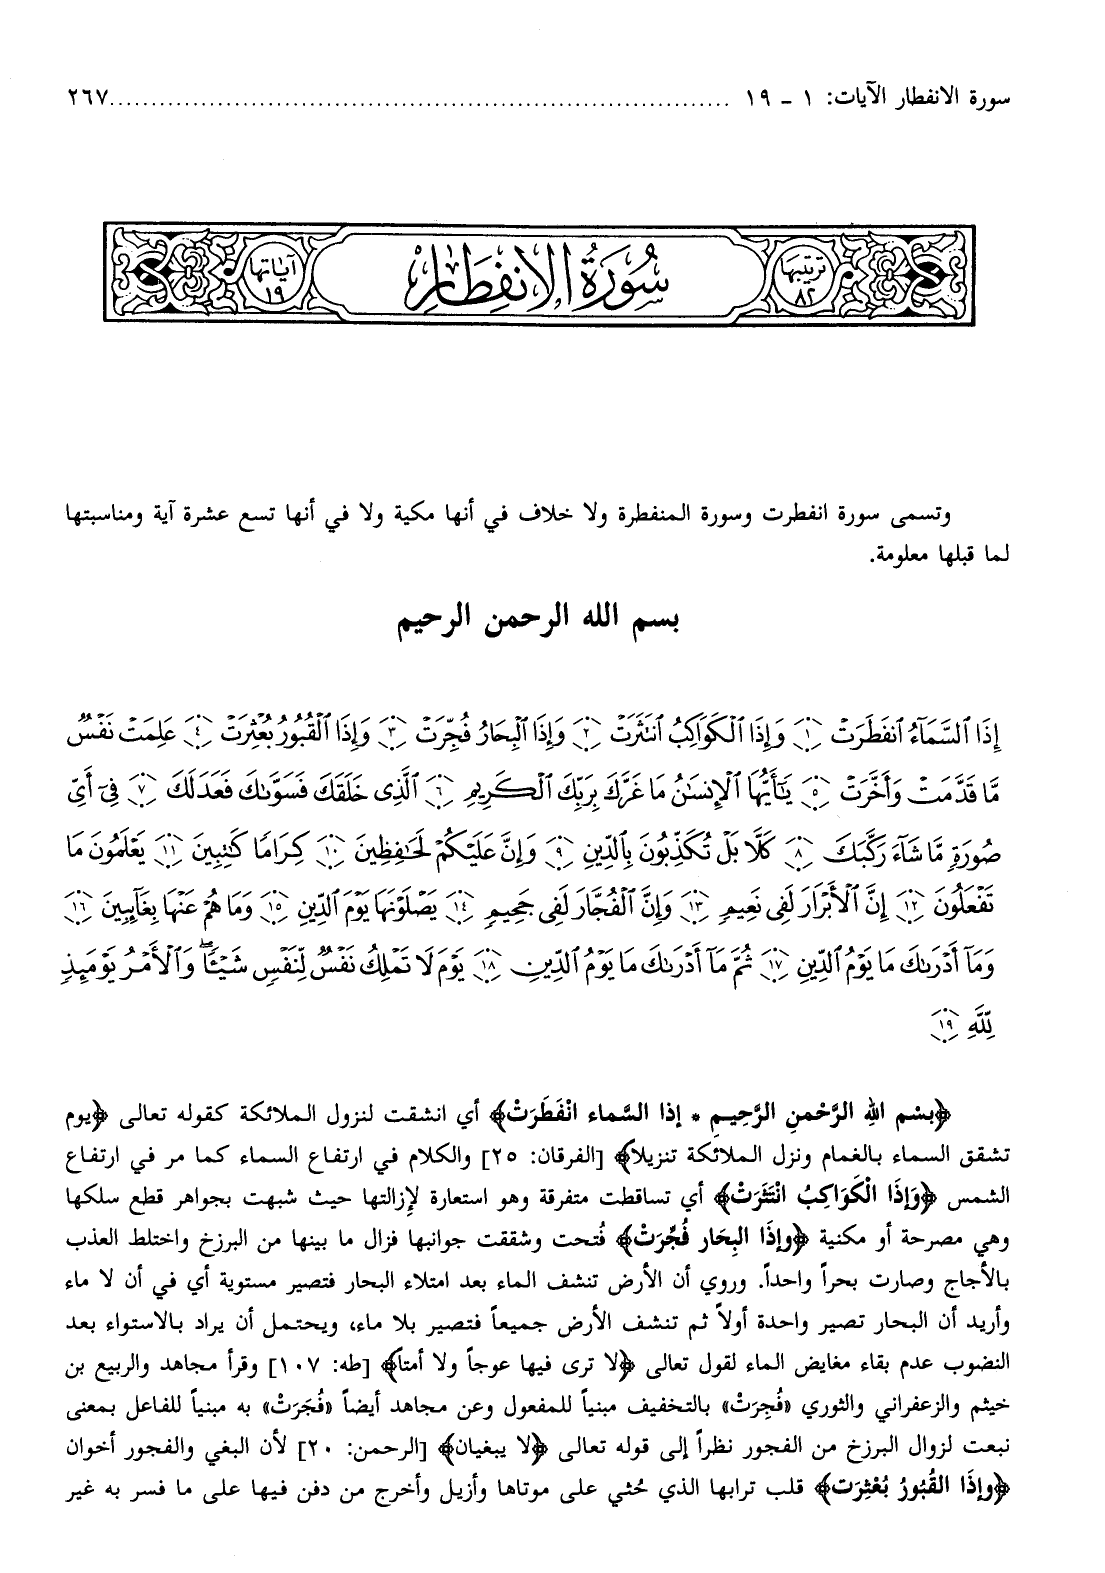 سورة الانفطار الآيات: ١ ـ ١٩ ........................................................................ ٢٦٧
ترتيبها ٨٢
سُورَةُ الانفِطَارِ
آياتها ١٩
وتسمى سورة انفطرت وسورة المنفطرة ولا خلاف في أنها مكية ولا في أنها تسع عشرة آية ومناسبتها
لما قبلها معلومة.
بسم الله الرحمن الرحيم
إِذَا ٱلسَّمَآءُ ٱنفَطَرَتْ ﴿١﴾ وَإِذَا ٱلْكَوَاكِبُ ٱنتَثَرَتْ ﴿٢﴾ وَإِذَا ٱلْبِحَارُ فُجِّرَتْ ﴿٣﴾ وَإِذَا ٱلْقُبُورُ بُعْثِرَتْ ﴿٤﴾ عَلِمَتْ نَفْسٌ
مَّا قَدَّمَتْ وَأَخَّرَتْ ﴿٥﴾ يَٰٓأَيُّهَا ٱلْإِنسَٰنُ مَا غَرَّكَ بِرَبِّكَ ٱلْكَرِيمِ ﴿٦﴾ ٱلَّذِى خَلَقَكَ فَسَوَّىٰكَ فَعَدَلَكَ ﴿٧﴾ فِىٓ أَىِّ
صُورَةٍ مَّا شَآءَ رَكَّبَكَ ﴿٨﴾ كَلَّا بَلْ تُكَذِّبُونَ بِٱلدِّينِ ﴿٩﴾ وَإِنَّ عَلَيْكُمْ لَحَٰفِظِينَ ﴿١٠﴾ كِرَامًا كَٰتِبِينَ ﴿١١﴾ يَعْلَمُونَ مَا
تَفْعَلُونَ ﴿١٢﴾ إِنَّ ٱلْأَبْرَارَ لَفِى نَعِيمٍ ﴿١٣﴾ وَإِنَّ ٱلْفُجَّارَ لَفِى جَحِيمٍ ﴿١٤﴾ يَصْلَوْنَهَا يَوْمَ ٱلدِّينِ ﴿١٥﴾ وَمَا هُمْ عَنْهَا بِغَآئِبِينَ ﴿١٦﴾
وَمَآ أَدْرَىٰكَ مَا يَوْمُ ٱلدِّينِ ﴿١٧﴾ ثُمَّ مَآ أَدْرَىٰكَ مَا يَوْمُ ٱلدِّينِ ﴿١٨﴾ يَوْمَ لَا تَمْلِكُ نَفْسٌ لِّنَفْسٍ شَيْـًٔا ۖ وَٱلْأَمْرُ يَوْمَئِذٍ
لِّلَّهِ ﴿١٩﴾
﴿بِسْم اللهِ الرَّحْمنِ الرَّحِيمِ * إذا السَّماء انْفَطَرَتْ﴾ أي انشقت لنزول الملائكة كقوله تعالى ﴿يوم
تشقق السماء بالغمام ونزل الملائكة تنزيلا﴾ [الفرقان: ٢٥] والكلام في ارتفاع السماء كما مر في ارتفاع
الشمس ﴿وَإِذَا الْكَوَاكِبُ انْتَثَرَتْ﴾ أي تساقطت متفرقة وهو استعارة لإزالتها حيث شبهت بجواهر قطع سلكها
وهي مصرحة أو مكنية ﴿وإذَا البِحَار فُجِّرَتْ﴾ فُتحت وشققت جوانبها فزال ما بينها من البرزخ واختلط العذب
بالأجاج وصارت بحراً واحداً. وروي أن الأرض تنشف الماء بعد امتلاء البحار فتصير مستوية أي في أن لا ماء
وأريد أن البحار تصير واحدة أولاً ثم تنشف الأرض جميعاً فتصير بلا ماء، ويحتمل أن يراد بالاستواء بعد
النضوب عدم بقاء مغايض الماء لقول تعالى ﴿لا ترى فيها عوجاً ولا أمتاً﴾ [طه: ١٠٧] وقرأ مجاهد والربيع بن
خيثم والزعفراني والثوري «فُجِرَتْ» بالتخفيف مبنياً للمفعول وعن مجاهد أيضاً «فُجَرَتْ» به مبنياً للفاعل بمعنى
نبعت لزوال البرزخ من الفجور نظراً إلى قوله تعالى ﴿لا يبغيان﴾ [الرحمن: ٢٠] لأن البغي والفجور أخوان
﴿وإِذَا القُبُورُ بُعْثِرَت﴾ قلب ترابها الذي حُثي على موتاها وأزيل وأخرج من دفن فيها على ما فسر به غير